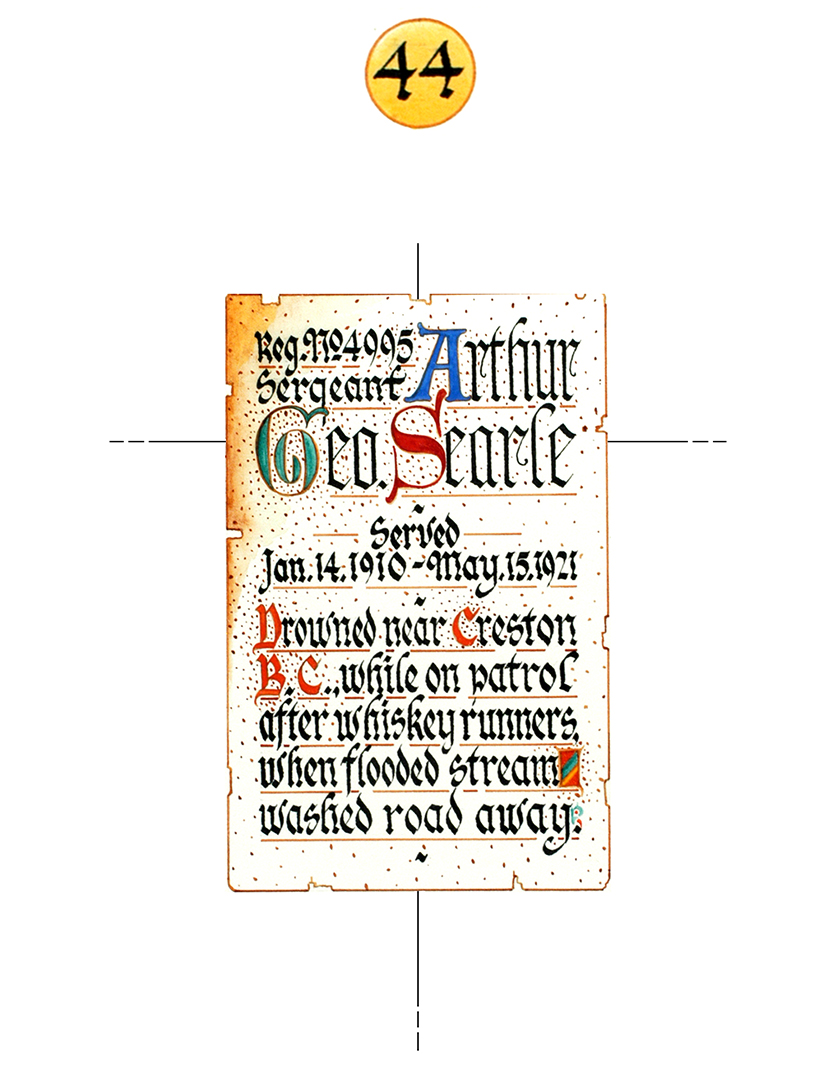 44
Reg. No 4995 Arthur
Sergeant
Geo. Searle
~
Served
Jan. 14. 1910 - May. 15. 1921
~
Drowned near Creston
B. C., while on patrol
after whiskey runners,
when flooded stream
washed road away.
~